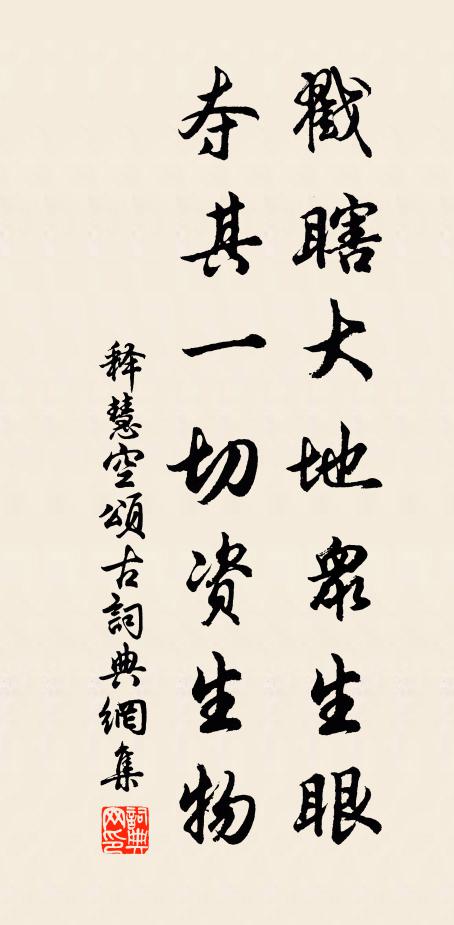 戳瞎大地眾生眼
夺其一切资生物
释慧空頌古詞典網集
詞典网印